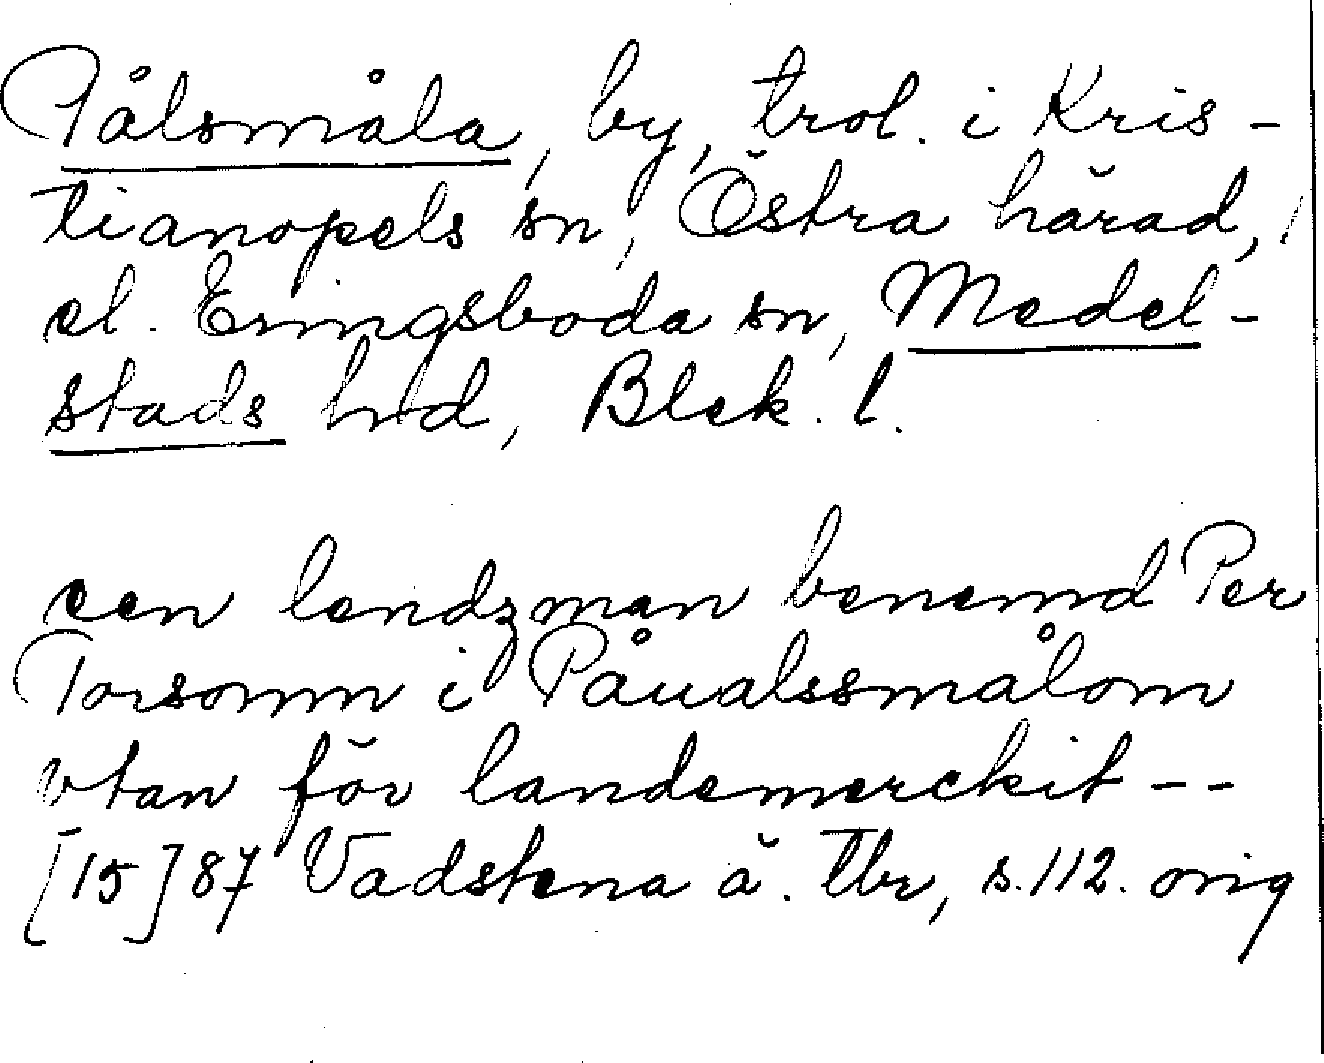 Pålsmåla, by, trol. i Kris-
tianopels sn, Östra härad,
el. Eringsboda sn, Medel-
stads hrd, Blek. l.
een lendzman benemd Per
Torsonn i Påualssmålom
vtan för landemerckit --
[15]87 Vadstena ä. Tbr, s. 112. orig